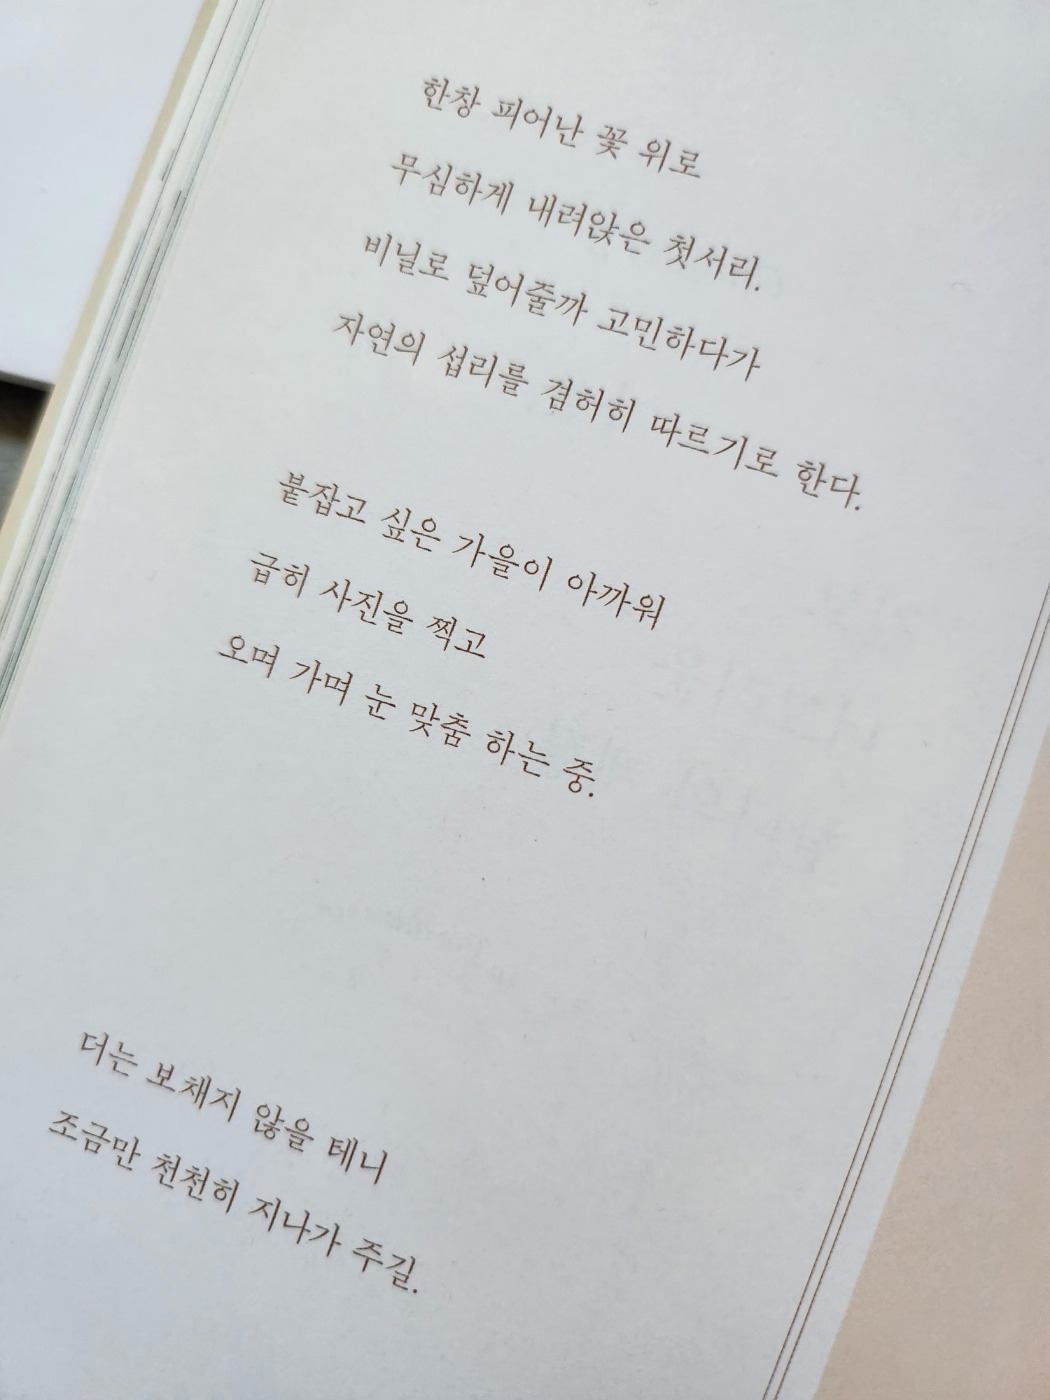 한창 피어난 꽃 위로
무심하게 내려앉은 첫서리.
비닐로 덮어줄까 고민하다가
자연의 섭리를 겸허히 따르기로 한다.
붙잡고 싶은 가을이 아까워
급히 사진을 찍고
오며 가며 눈 맞춤 하는 중.
더는 보채지 않을 테니
조금만 천천히 지나가 주길.